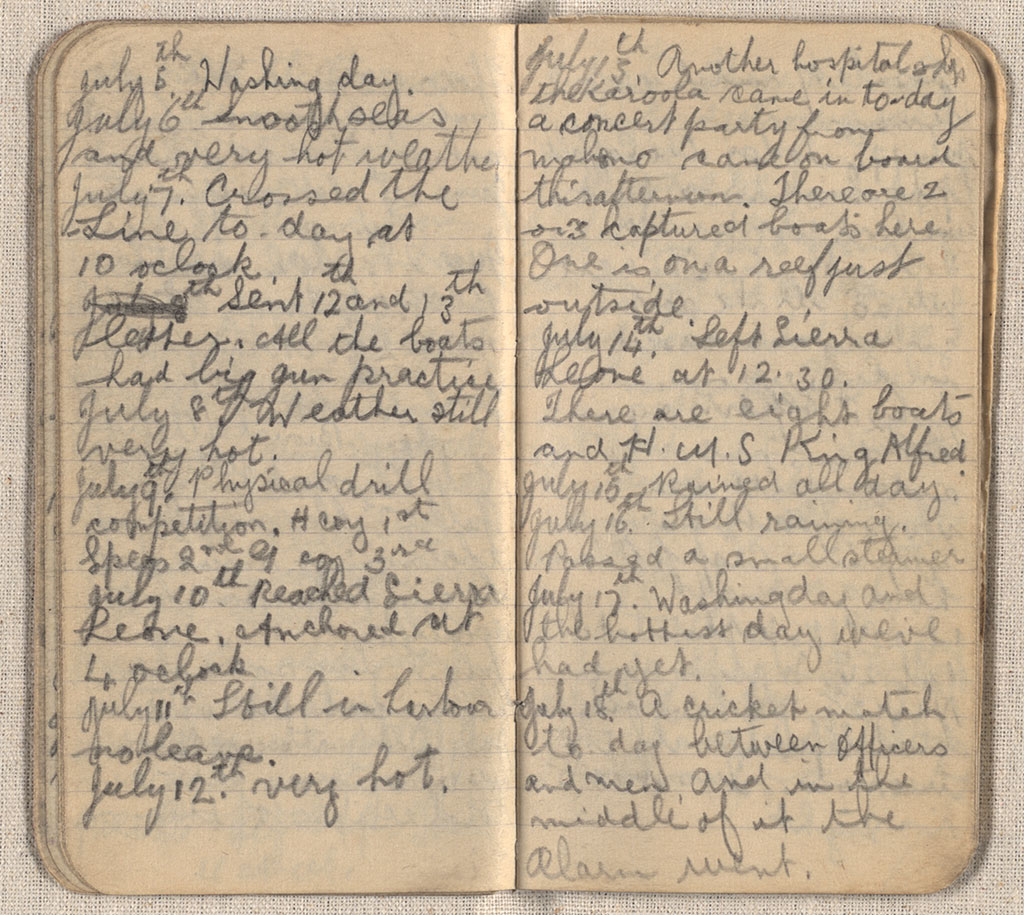 July 5th. Washing day.
July 6th Smooth seas
and very hot weather
July 7th. Crossed the
Line to-day at
10 oclock.
th Sent 12th and 13th
letters. All the boats
had big gun practise
July 8th Weather still
very hot.
July 9th. Physical drill
competition. H coy 1st
Specs 2nd G coy 3rd
July 10th. Reached Sierra
Leone. Anchored at
4 oclock
July 11th Still in harbour
no leave.
July 12th. very hot.
July 13th. Another hospital ship
the Karoola came in to-day
a concert party from
came on board
this afternoon. There are 2
or 3 captured boats here.
One is on a reef just
outside.
July 14th. Left Sierra
Leone at 12.30.
There are eight boats
and H.M.S King Alfred
July 15th Rained all day.
July 16th. Still raining.
Passed a small steamer
July 17th. Washing day and
the hottest day weve
had yet.
July 18th. A cricket match
to day between Officers
and men. And in the
middle of it the
Alarm went.